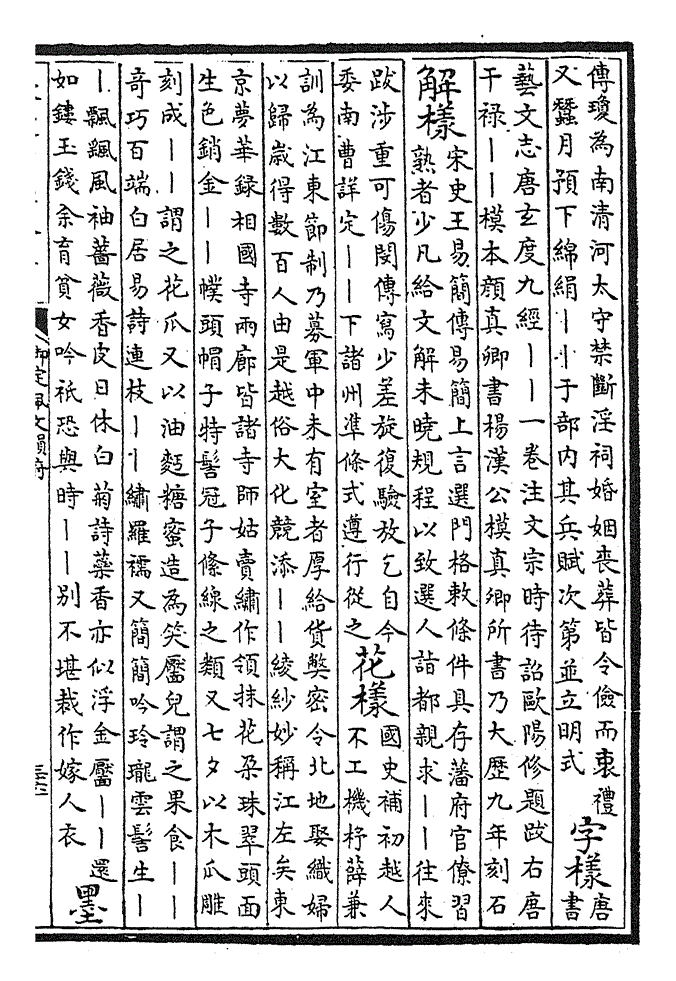 傳瓊為南清河太守禁斷淫祠婚姻喪葬皆令儉而衷禮
又蠶月預下綿絹丨丨于部內其兵賦次第並立明式
字樣
唐
書
藝文志唐玄度九經丨丨一卷注文宗時待詔歐陽修題跋右唐
干祿丨丨模本顏真卿書楊漢公模真卿所書乃大歷九年刻石
解樣
宋史王易簡傳易簡上言選門格敕條件具存藩府官僚習
熟者少凡給文解未曉規程以致選人詣都親求丨丨往來
跋涉重可傷閔傳寫少差旋復驗放乞自今
委南曹詳定丨丨下諸州準條式遵行從之
花樣
國史補初越人
不工機杼薛兼
訓為江東節制乃募軍中未有室者厚給貨幣密令北地娶織婦
以歸歲得數百人由是越俗大化競添丨丨綾紗妙稱江左矣東
京夢華録相國寺兩廊皆諸寺師姑賣繡作領抹花朶珠翠頭面
生色銷金丨丨幞頭帽子特髻冠子絛線之類又七夕以木瓜雕
刻成丨丨謂之花瓜又以油麪糖蜜造為笑靨兒謂之果食丨丨
奇巧百端白居易詩連枝丨丨繡羅襦又簡簡吟玲瓏雲髻生丨
丨飄颻風袖薔薇香皮日休白菊詩藥香亦似浮金靨丨丨還
如鏤玉錢余育貧女吟祇恐與時丨丨別不堪裁作嫁人衣
墨
御定佩文韻府